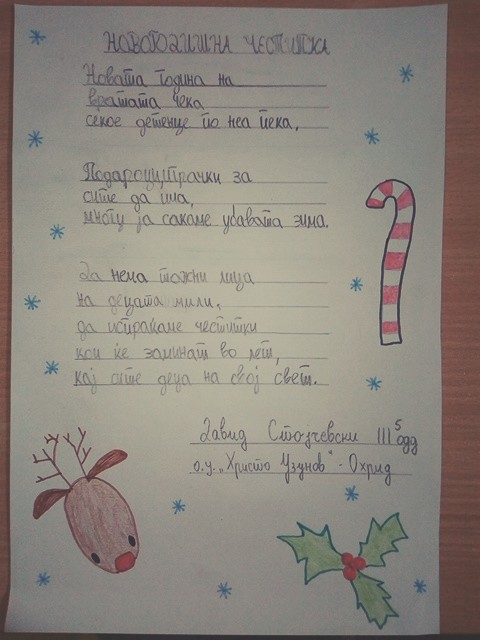 НОВОГОДИШНА ЧЕСТИТКА
Новата година на
вратата чека
секое детенце по неа пека.
за
сите да има,
многу ја сакаме убавата зима.
Да нема тажни лица
на децата мили,
да испраќаме честитки
кои ќе заминат во лет,
кај сите деца на свој свет.
Давид Стојчевски III 5 одд
о.у. „Христо Узунов" - Охрид